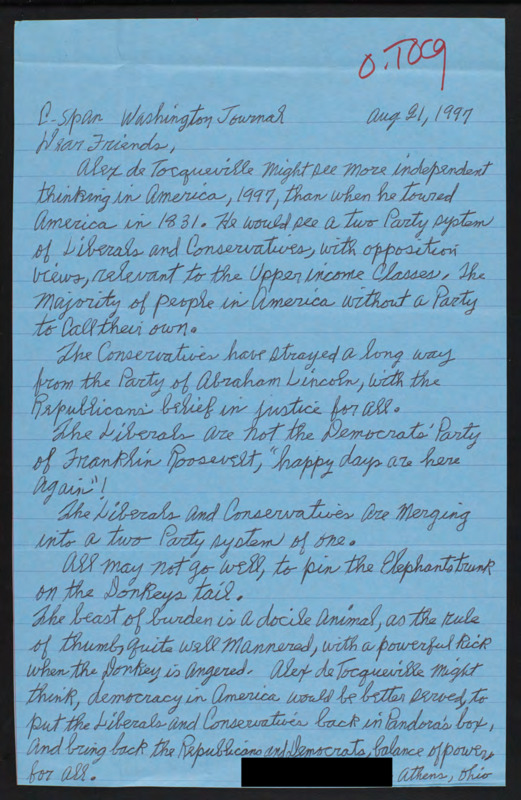 O. TOCQ
C-Span Washington Journal Aug 21, 1997
Dear Friends,
Alex de Tocqueville might see more independent
thinking in America, 1997, than when he toured
America in 1831. He would see a two Party system
of Liberals and Conservatives, with opposition
views, relevant to the Upper income Classes. The
Majority of people in America without a Party
to Call their own.
The Conservatives have strayed a long way
from the Party of Abraham Lincoln, with the
Republicans belief in justice for all.
The Liberals are not the Democrats' Party
of Franklin Roosevelt, "happy days are here
again"!
The Liberals and Conservatives are Merging
into a two Party system of one.
All may not go well, to pin the Elephants trunk
on the Donkeys tail.
The beast of burden is a docile animal, as the rule
of thumb, quite well Mannered, with a powerful Kick
when the Donkey is angered. Alex de Tocqueville Might
think, democracy in America would be better served, to
put the Liberals and Conservatives back in Pandora's box,
and bring back the Republicans and Democrats, balance of power,
for all.
Athens, Ohio